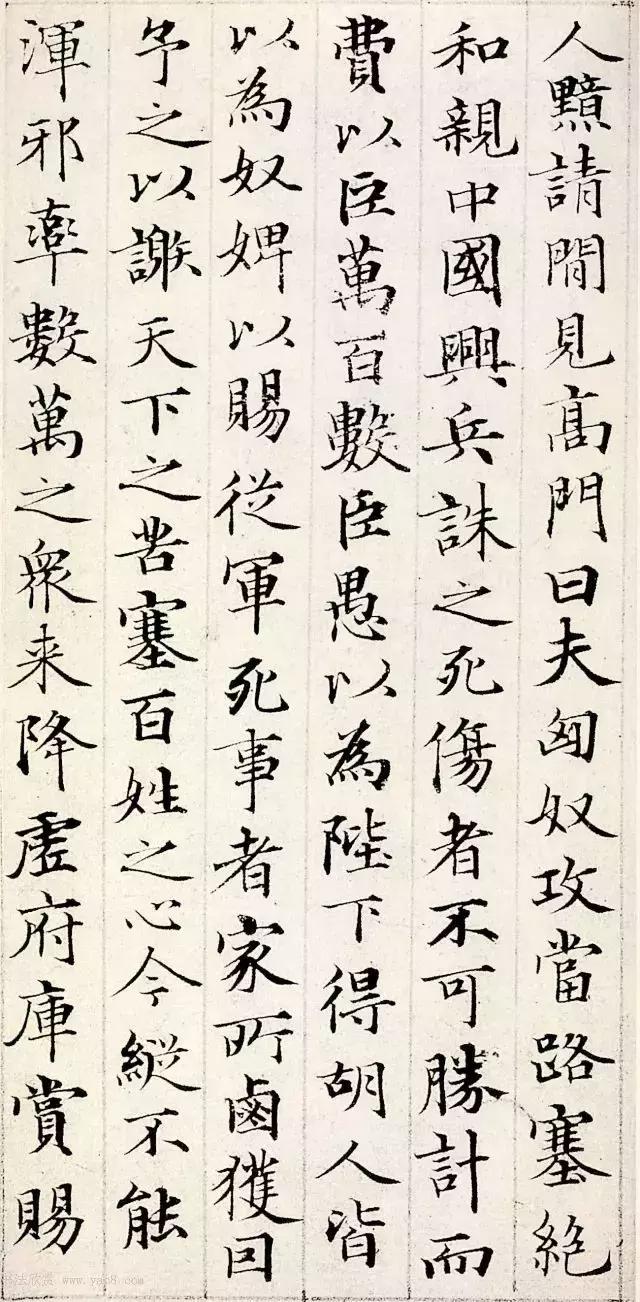 人黥請閒見高門曰夫匈奴攻當路塞絕
和親中國興兵誅之死傷者不可勝計而
費以臣萬百數臣愚以為陛下得胡人皆
以為奴婢以賜從軍死事者家所鹵獲因
予之以謝天下之苦塞百姓之心今縱不能
渾邪率數萬之衆来降虛府庫賞賜
www.yac8.com